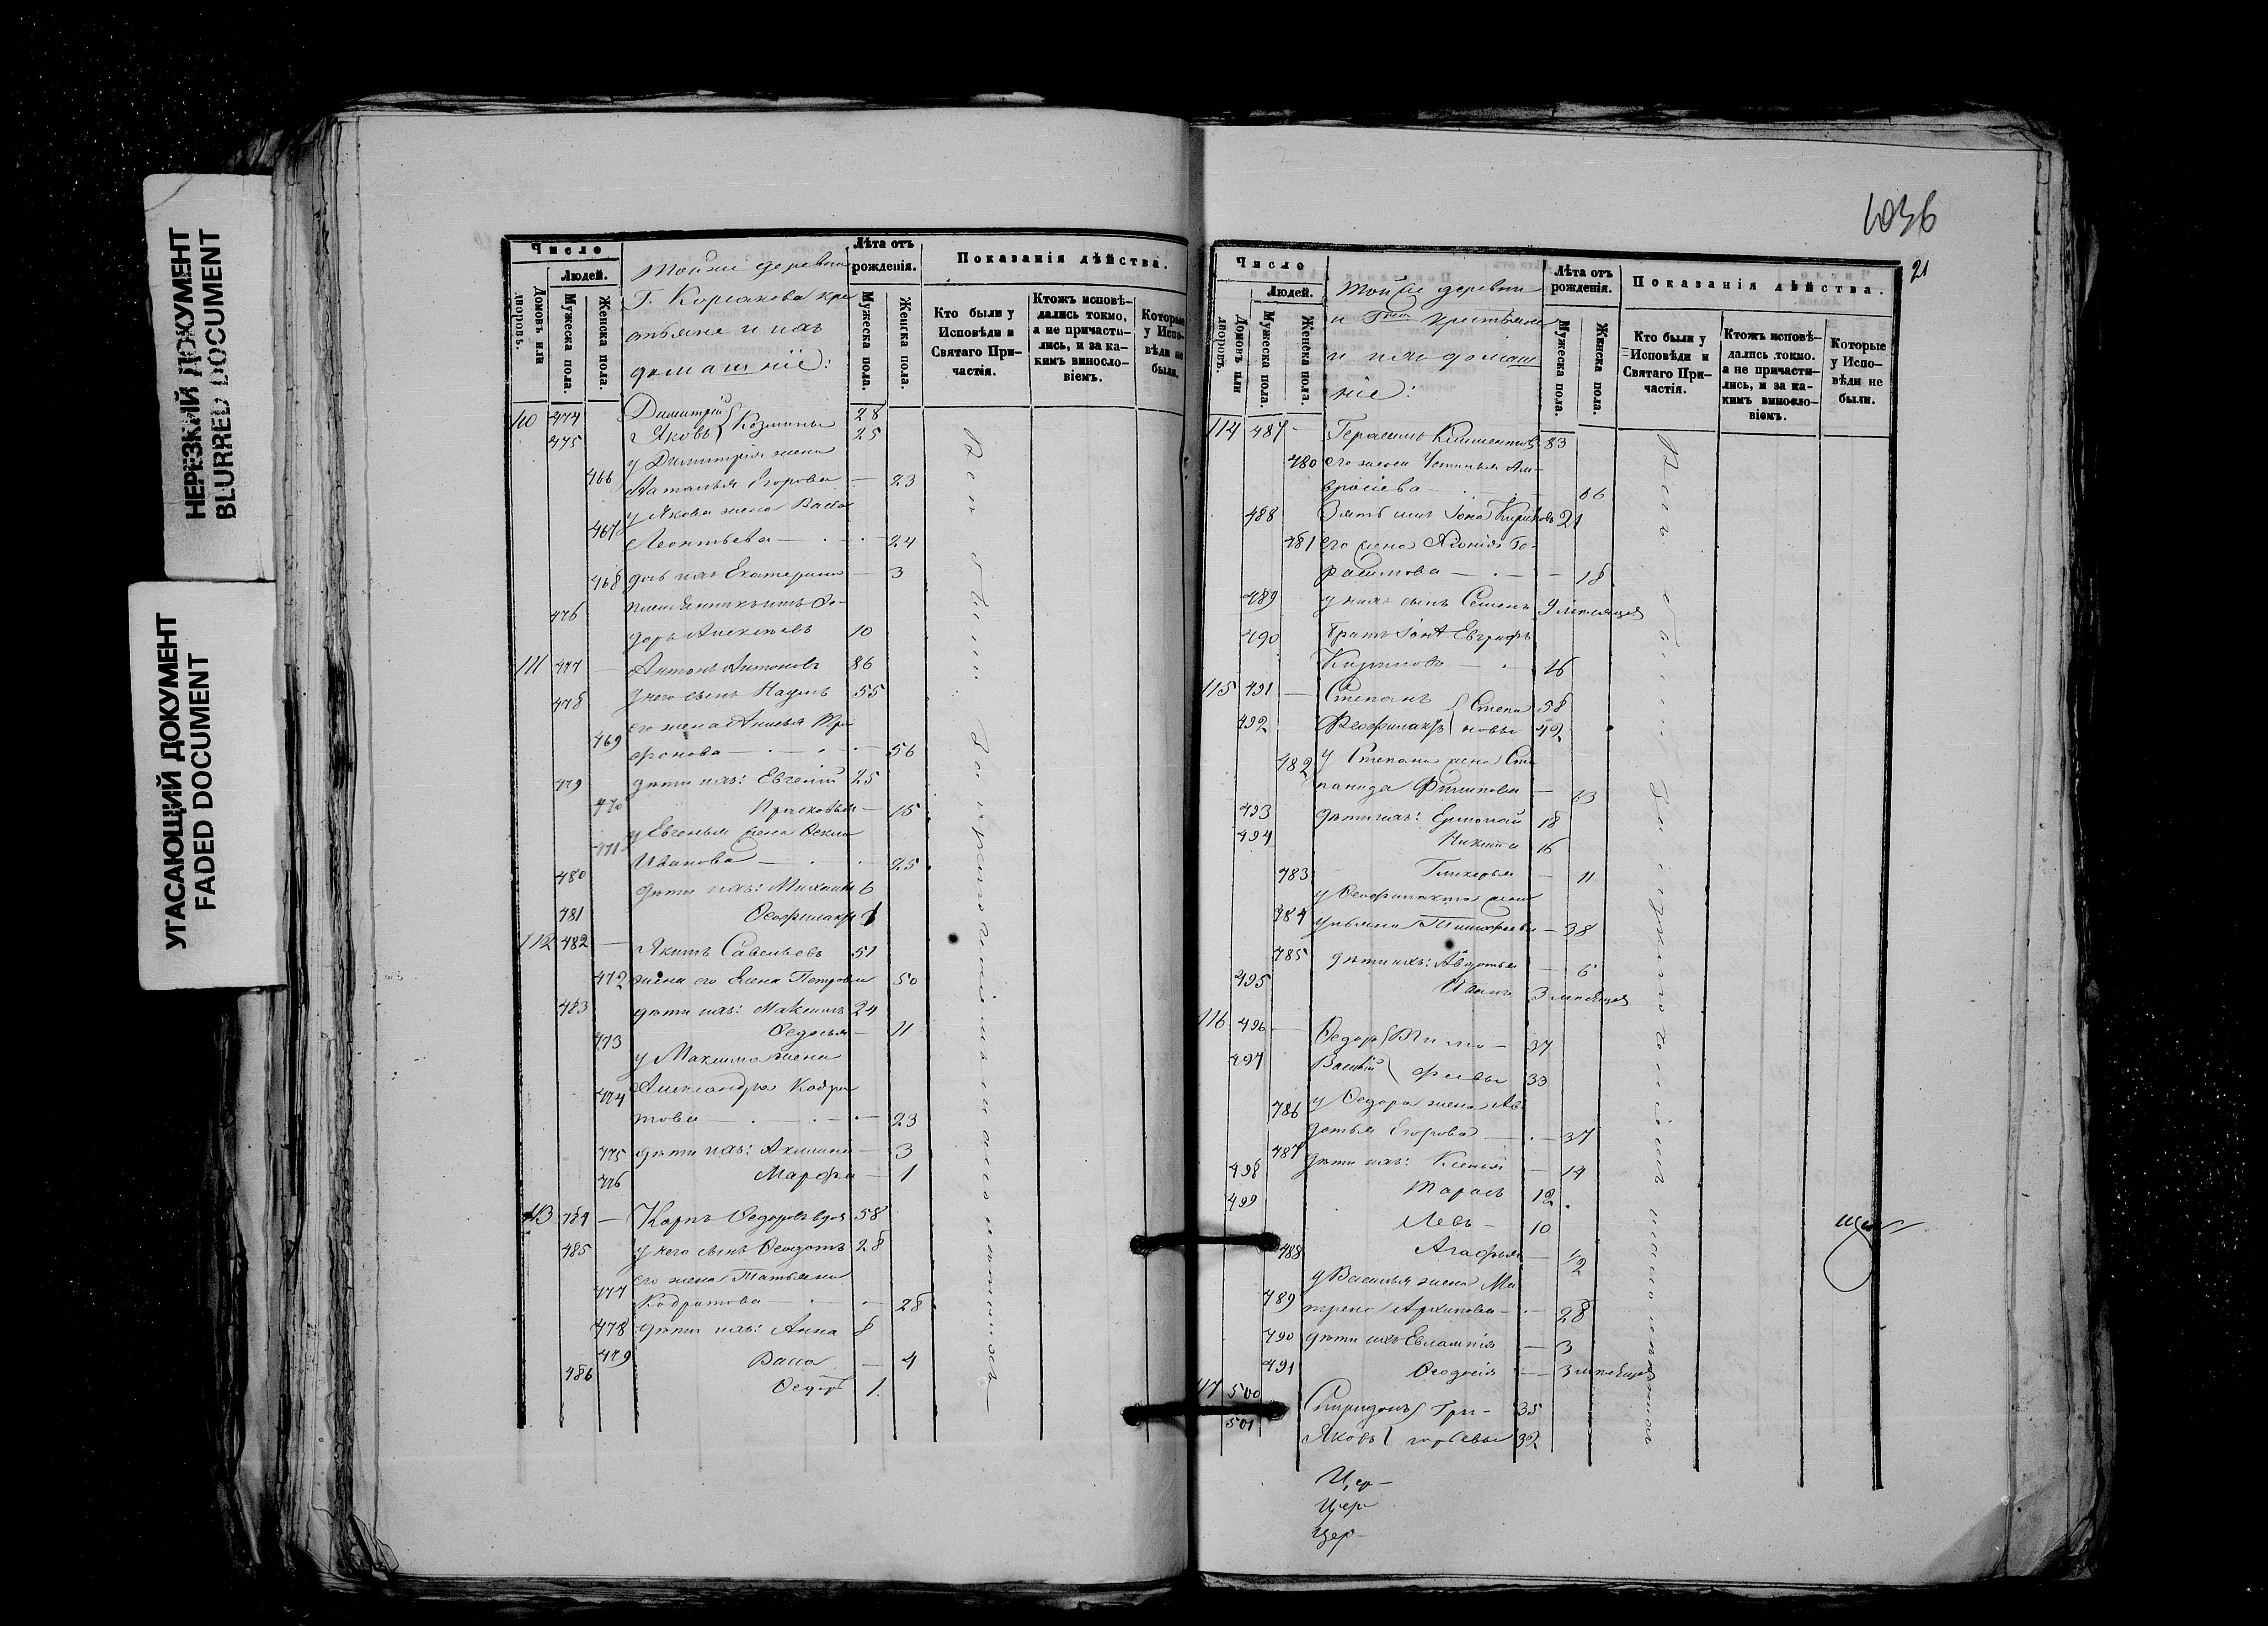 НЕРЕЗКИЙ ДОКУМЕНТ
BLURRED DOCUMENT
УГАСАЮЩИЙ ДОКУМЕНТ
FADED DOCUMENT
Число
Людей.
Домовъ или дворовъ.
Мужеска пола.
Женска пола.
Тойже деревни
Г. Корсакова кре
стьяне и ихъ
домашніе:
Лѣта отъ рожденія.
Мужеска пола.
Женска пола.
Показанія дѣйства.
Кто были у Исповѣди и Святаго Причастія.
Ктожъ исповѣдались токмо, а не причастились, и за какимъ винословіемъ.
Которые у Исповѣди не были.
110 474 Димитрій 28
475 Яковъ Козмины 25
у Димитрія жена
466 Наталья Егорова — 23
у Якова жена Васса
467 Леонтьева — 24
468 дочь ихъ Екатерина — 3
476 племянникъ ихъ Ѳе-
доръ Алексѣевъ 10
111 477 — Антонъ Антоновъ 86
478 у него сынъ Наумъ 55
его жена Анисья
469 фонова — 56
479 дѣти ихъ: Евгеній 25
470 Прасковья — 15
у Евгенья жена Ѳекла
471 Иванова — 25
480 дѣти ихъ: Михаилъ 6
481 Ѳеофилактъ 1
112 482 — Якимъ Савельевъ 51
472 жена его Елена Петрова 50
483 дѣти ихъ: Максимъ 24
473 Ѳедосья — 11
у Максима жена
474 Александра Кодра
това — 23
475 дѣти ихъ: Акилина — 3
476 Марфа — 1
113 484 — Карпъ Ѳедоровъ вдов 58
485 у него сынъ Ѳеодотъ 28
его жена Татьяна
477 Кодратова — 28
478 дѣти ихъ: Анна 8
479 Васса — 4
486 Ѳедоръ 1.
1036
21
Число
Людей.
Домовъ или дворовъ.
Мужеска пола.
Женска пола.
Тойже деревни
и Гна крестьяне
и ихъ домаш
ніе:
Лѣта отъ рожденія.
Мужеска пола.
Женска пола.
Показанія дѣйства.
Кто были у Исповѣди и Святаго Причастія.
Ктожъ исповѣдались токмо. а не причастились, и за какимъ винословіемъ.
Которые у Исповѣди не были.
114 487 — Герасимъ Климентовъ 83
480 его жена Устинья Ам-
вросіева — 66
488 Зять ихъ Іона Кириловъ 21
481 его жена Ге-
расимова — 18
489 у нихъ сынъ Семенъ 9 мѣсяцев
490 Братъ Іоны Евграфъ
Кириловъ — 16
115 491 — Степанъ Степа 58
492 Ѳеофилактъ новы 42
482 у Степана жена Сте
панида Филипова — 63
493 дѣти ихъ: Ермолай 18
494 Никита 16
483 Гликерья — 11
у Ѳеофилакта жена
484 Ульяна Тимофеева — 38
485 дѣти ихъ: Авдотья — 6
495 Иванъ 3 мѣсяцев
116 496 — Ѳедоръ Тимо- 37
497 Василій феевы 33
486 у Ѳедора жена Ав
дотья Егорова — 37
487 дѣти ихъ: Ксенія — 14
498 Тарасъ 12
499 Левъ — 10
488 Агафья — 1/2
у Василья жена Ма
489 трена Архипова — 28
490 дѣти ихъ Евлампія — 3
491 Ѳеодосія — 3 мѣсяцев
117 500 Спиридонъ Гри- 35
501 Яковъ горьевы 32
Цер-
Цер-
Цер-